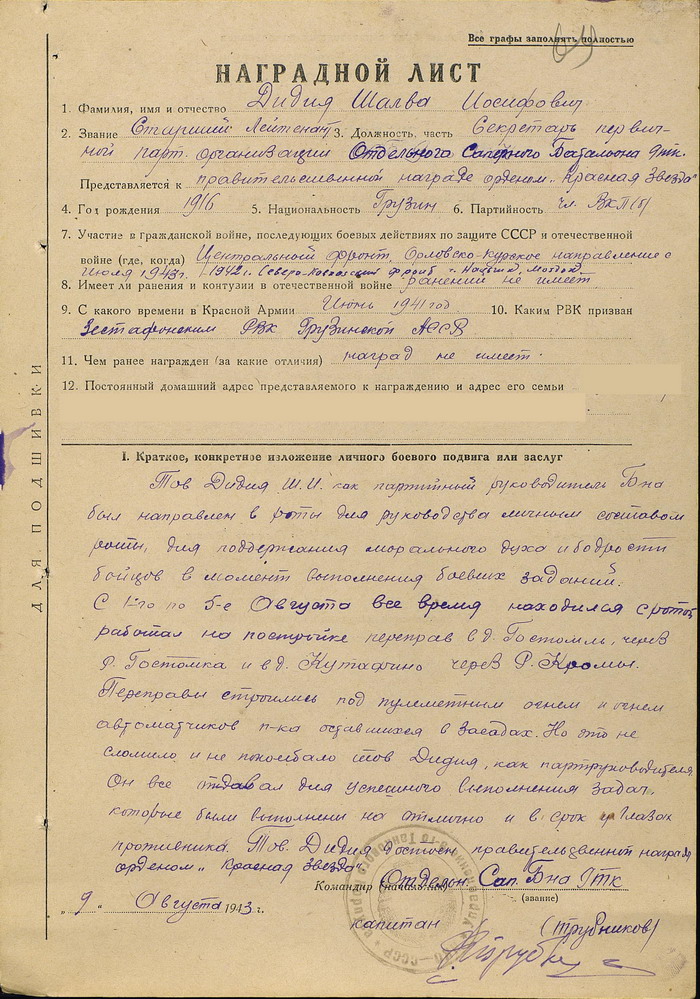 Все графы заполнять полностью
НАГРАДНОЙ ЛИСТ
1. Фамилия, имя и отчество Дидия Шалва Иосифович
2. Звание Старший Лейтенант 3. Должность, часть Секретарь первич-
ной парт. организации Отдельного Саперного Батальона 9тк.
Представляется к правительственной награде орденом „Красная Звезда"
4. Год рождения 1916 5. Национальность Грузин 6. Партийность чл. ВКП(б)
7. Участие в гражданской войне, последующих боевых действиях по защите СССР и отечественной
войне (где, когда) Центральный фронт, Орловско-Курское направление с
июля 1943г. 1942г. Северо-Кавказский фронт г. Нальчик, Моздок
8. Имеет ли ранения и контузии в отечественной войне ранений не имеет
9. С какого времени в Красной Армии Июнь 1941 год 10. Каким РВК призван
Зестафонским РВК Грузинской АССР
11. Чем ранее награжден (за какие отличия) наград не имеет.
12. Постоянный домашний адрес представляемого к награждению и адрес его семьи
ДЛЯ ПОДШИВКИ
I. Краткое, конкретное изложение личного боевого подвига или заслуг
Тов Дидия Ш.И. как партийный руководитель Б-на
был направлен в роты для руководства личным составом
роты, для поддержания морального духа и бодрости
бойцов в момент выполнения боевых заданий.
С 1-го по 5-е Августа все время находился с ротой,
работал на постройке переправ в д. Гостомль, через
р. Гостомка и в д. Кутафино через р. Кромы.
Переправы строились под пулеметным огнем и огнем
автоматчиков п-ка оставшихся в засадах. Но это не
сломило и не поколебало тов Дидия, как партруководителя
Он все отдавал для успешного выполнения задач,
которые были выполнени на отлично и в срок
противника. Тов. Дидия достоен правительственной награды
орденом „Красная Звезда"
Командир (начальник) Отдельн. Сап. Б-на 9тк
(звание)
„9" Августа 1943 г.
капитан (Трудников)